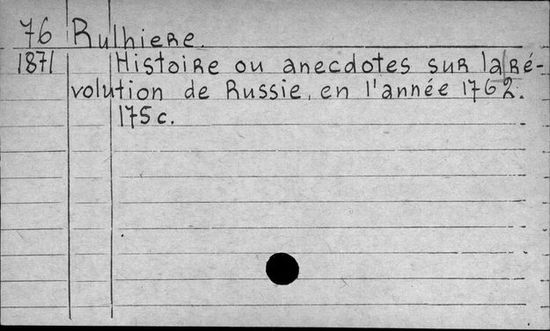 76 Rulhiere.
1871 Histoire ou anecdotes sur la Ré-
volution de Russie, en l'année 1762.
175 c.